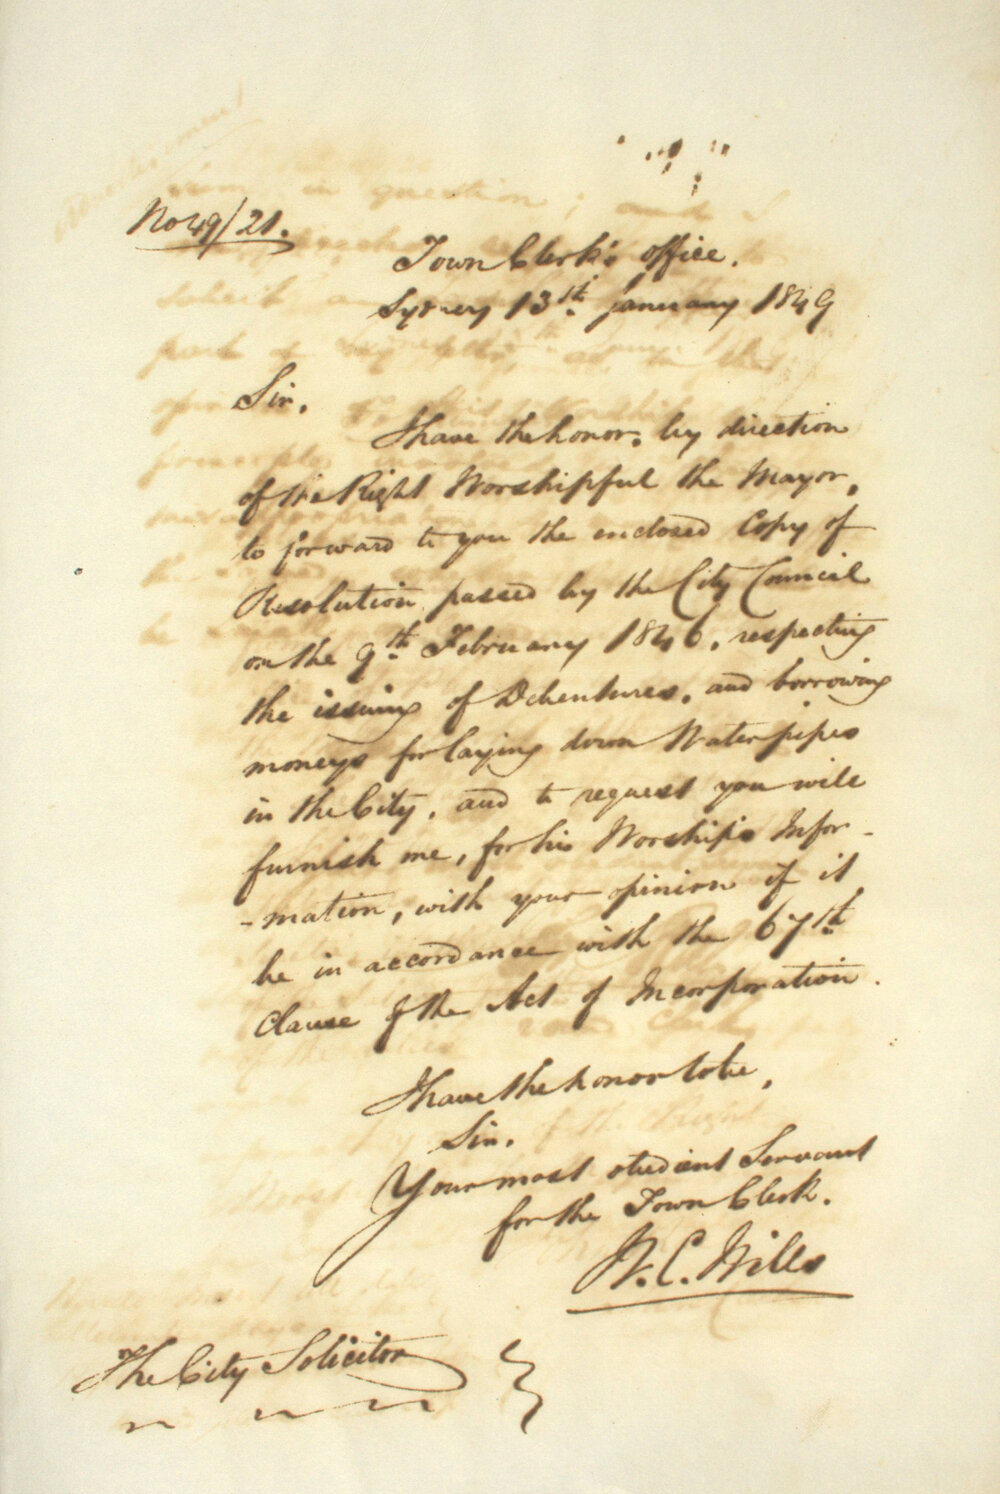 No 49/21.
Town Clerk's office.
Sydney 13th January 1849
Sir,
I have the honor, by direction
of the Right Worshipful the Mayor,
to forward to you the enclosed Copy of
Resolution passed by the City Council
on the 9th February 1846, respecting
the issuing of Debentures, and borrowing
moneys for laying down Water pipes
in the City, and to request you will
furnish me, for his Worship's Infor-
-mation, with your opinion if it
be in accordance with the 67th
Clause of the Act of Incorporation.
I have the honor to be,
Sir,
Your most obedient Servant
for the Town Clerk.
W. C. Wills
The City Solicitor